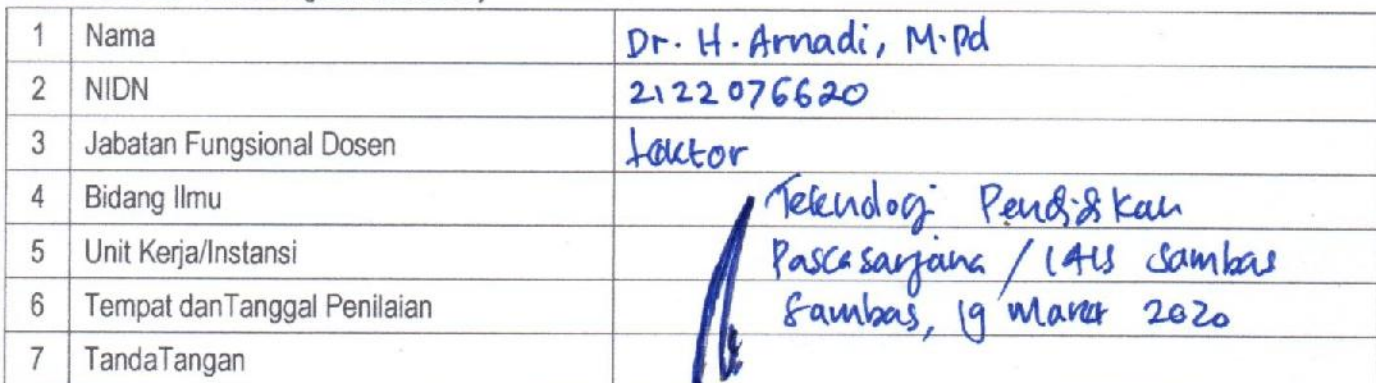 1 Nama Dr. H. Arnadi, M.Pd
2 NIDN 2122076620
3 Jabatan Fungsional Dosen Lektor
4 Bidang Ilmu Teknologi Pendidikan
5 Unit Kerja/Instansi Pascasarjana / IAIS Sambas
6 Tempat danTanggal Penilaian Sambas, 19 Maret 2020
7 TandaTangan